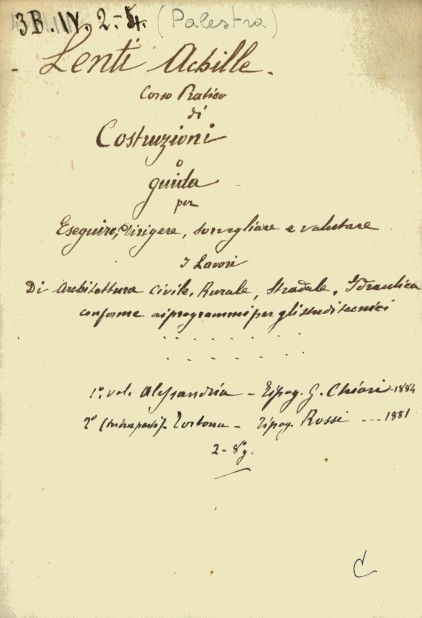 3B. IV. 2-4. (Palestra)
Lenti Achille.
Corso Pratico
di
Costruzioni
o
guida
per
Eseguire, Dirigere, sorvegliare e valutare
I Lavori
Di Architettura Civile, Rurale, Stradale, Idraulica
conforme ai programmi per gli studi tecnici
1º. vol. Alessandria - Tipog. G. Chiari - 1884
2º Tortona - Tipog. Rossi - 1881
2 - 8º g.
C